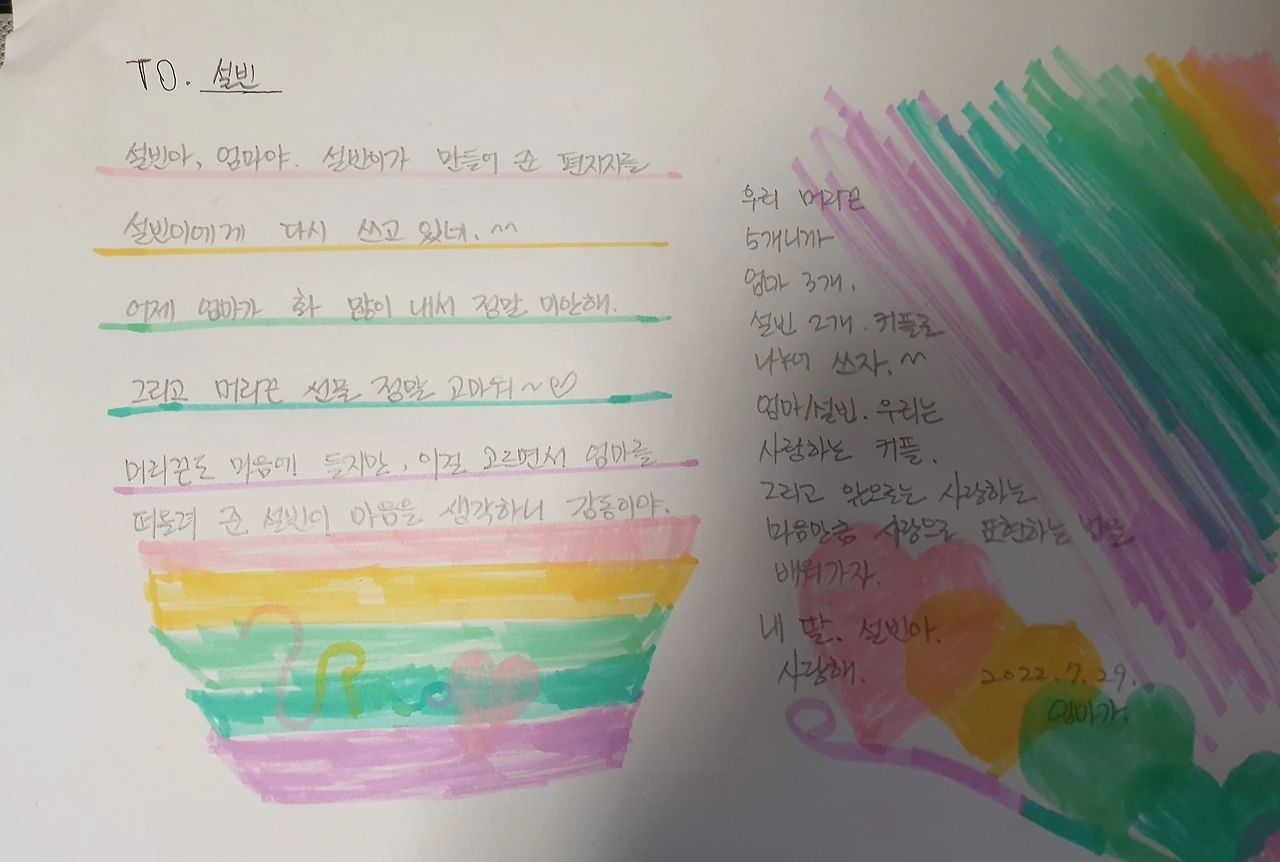 TO. 설빈
설빈아, 엄마야. 설빈이가 만들어 준 편지지를
설빈이에게 다시 쓰고 있네. ^^
어제 엄마가 화 많이 내서 정말 미안해.
그리고 머리끈 선물 정말 고마워~♡
머리끈도 마음에! 들지만, 이걸 고르면서 엄마를
떠올려 준 설빈이 마음을 생각하니 감동이야.
우리 머리끈
5개니까
엄마 3개.
설빈 2개. 커플로
나누어 쓰자. ^^
엄마/설빈. 우리는
사랑하는 커플.
그리고 앞으로는 사랑하는
마음만큼 사랑으로 표현하는 법을
배워가자.
내 딸. 설빈아.
사랑해.
2022.7.29.
엄마가.